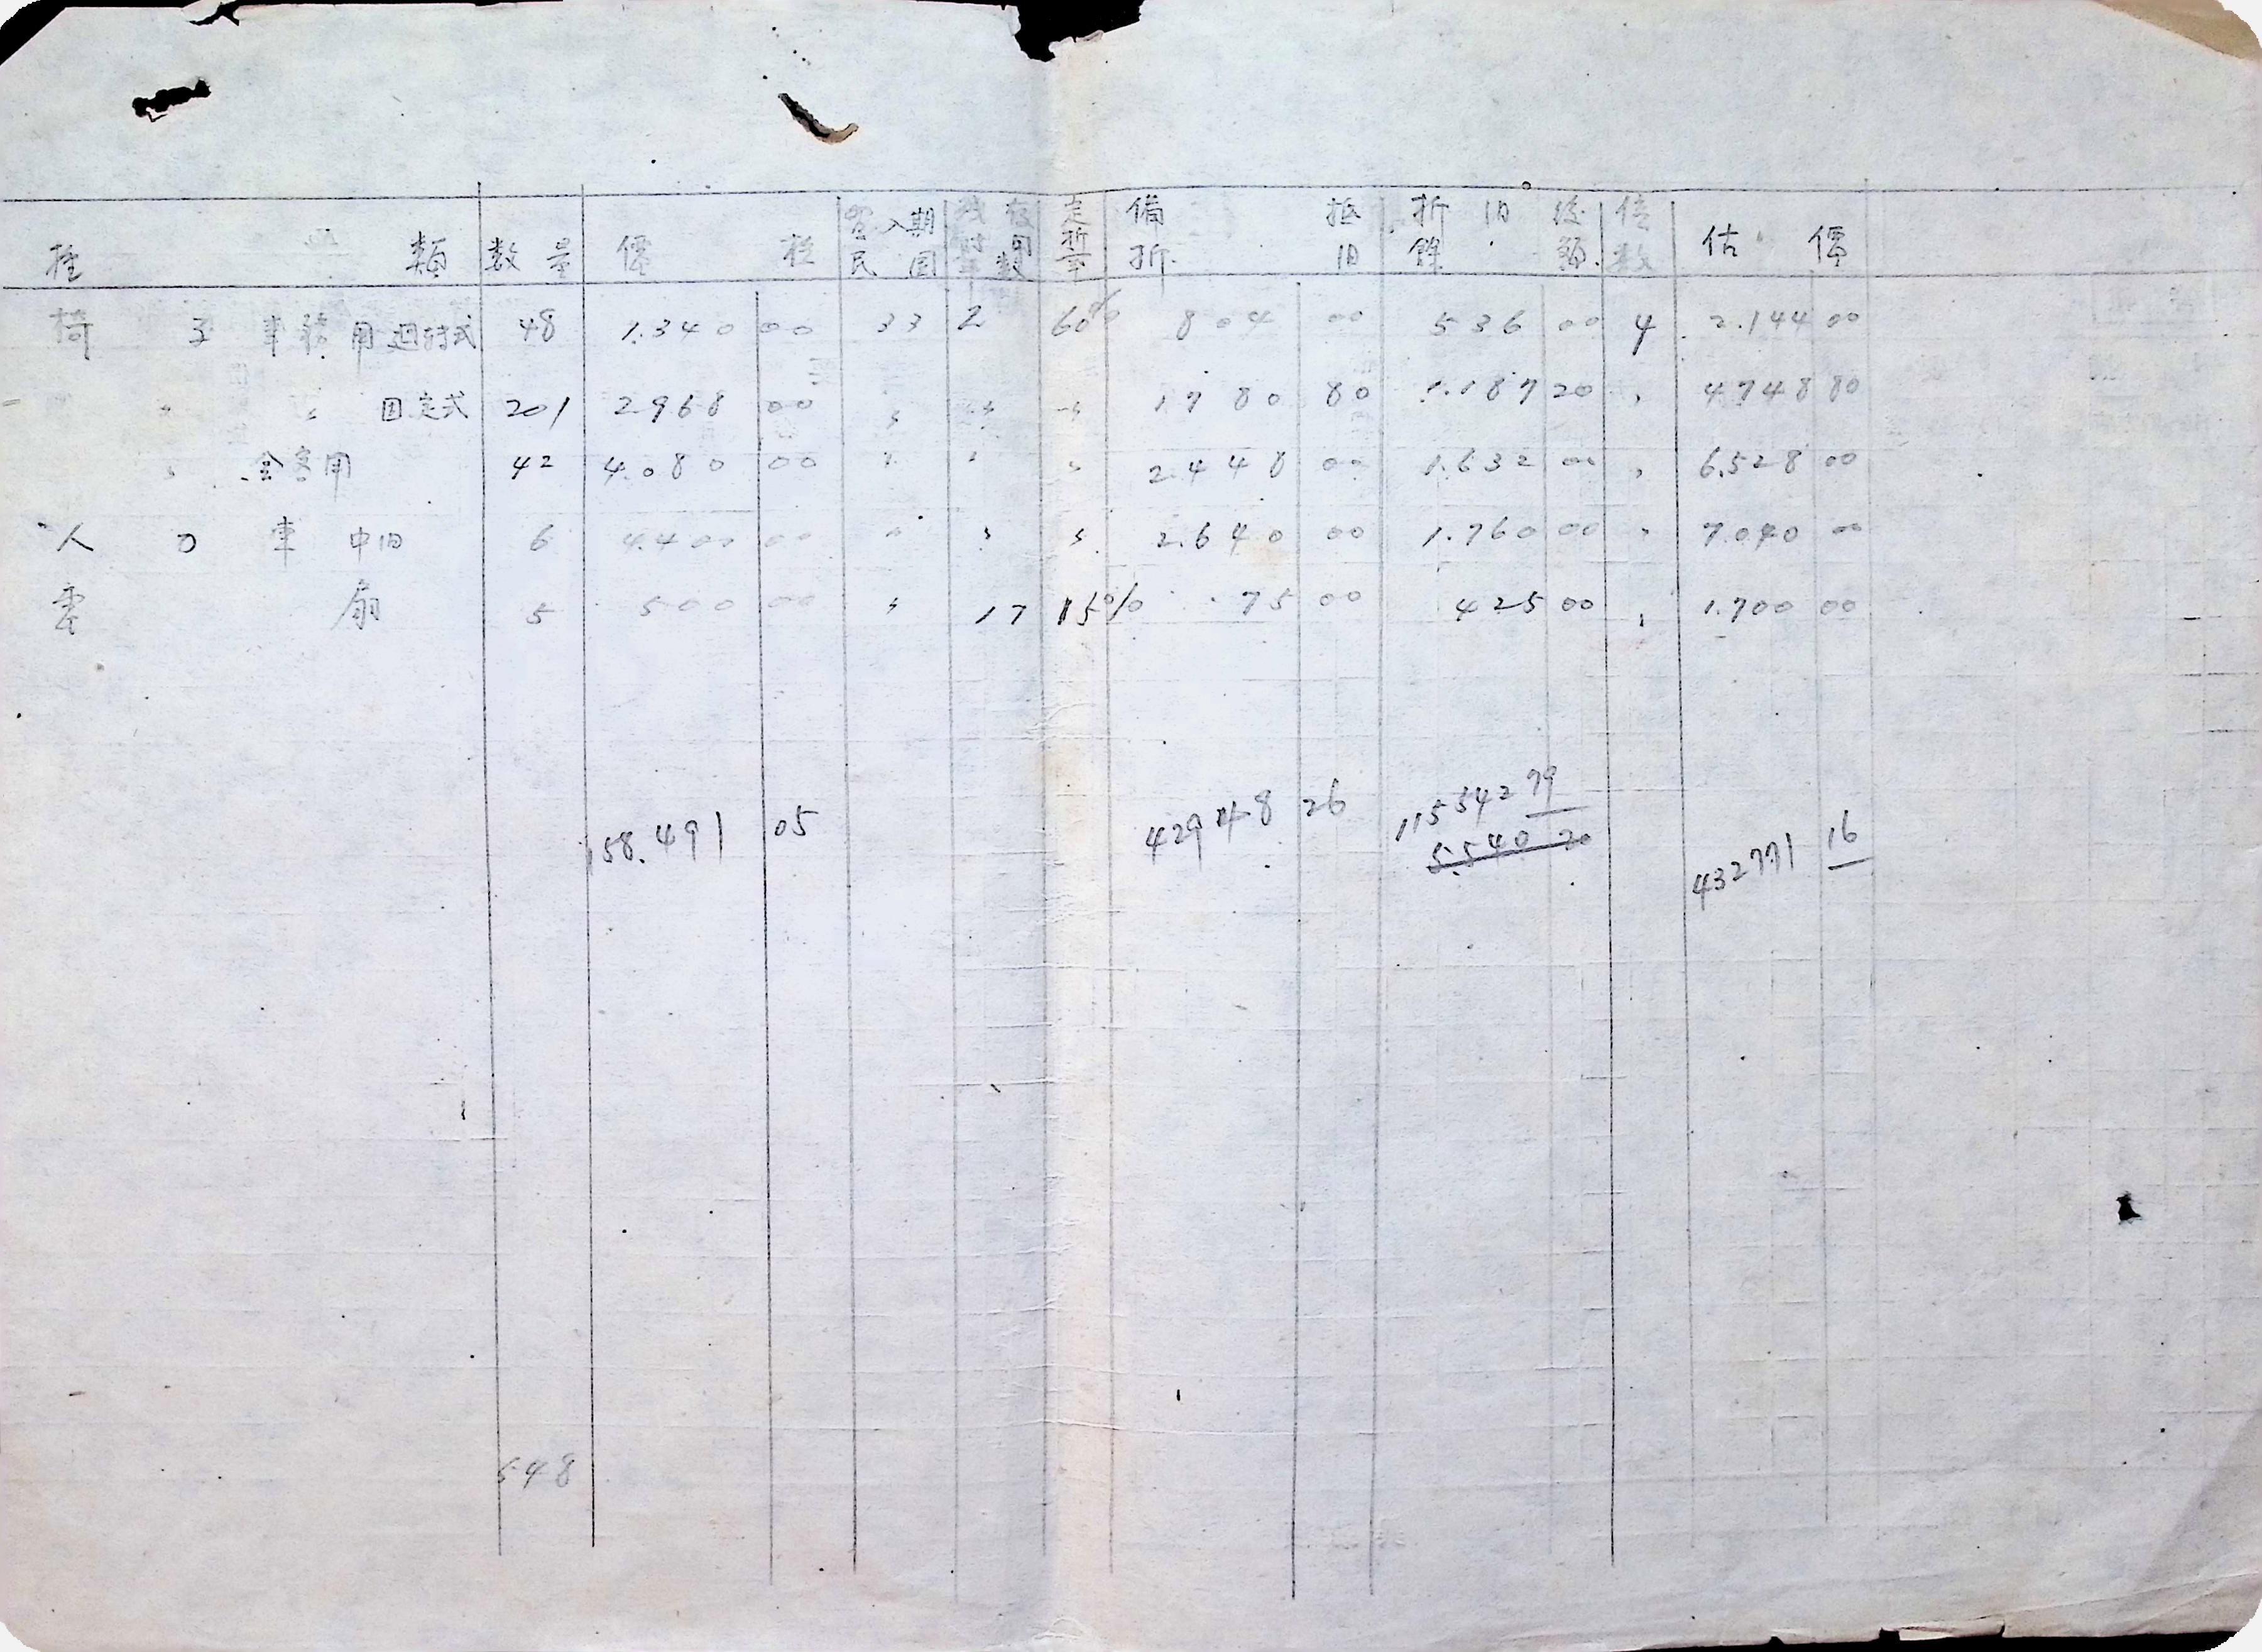 種 類 数量 價 格 買入期 民 国 残存 年数 定折率 備抵 折旧 折旧後 餘額 倍数 估 價
椅 子 事務用廻轉式 48 1.340 00 33 2 60% 804 00 536 00 4 2.144 00
〃 〃 固定式 201 2968 00 〃 〃 〃 1780 80 1.187 20 〃 4748 80
〃 会客用 42 4.080 00 〃 〃 〃 2.448 00 1.632 00 〃 6.528 00
人 力 車 中旧 6 4.400 00 〃 〃 〃 2.640 00 1.760 00 〃 7.040 00
電 扇 5 500 00 〃 17 15% 75 00 425 00 〃 1.700 00
158.491 05 42948 26 115542 79
5.540 20
432771 16
548